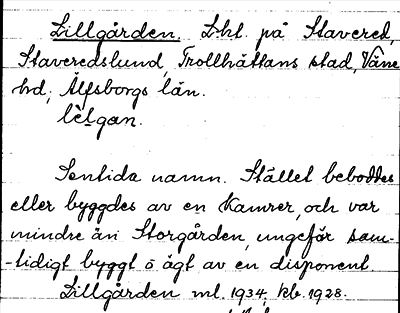 Lillgården. Lht. på Stavered,
Staveredslund, Trollhättans stad, Väne
hd, Älfsborgs län.
lèlgan.
Sentida namn. Stället beboddes
eller byggdes av en Kamrer, och var
mindre än Storgården, ungefär sam-
-tidigt byggt o ägt av en disponent
Lillgården ml. 1934, kb. 1928.